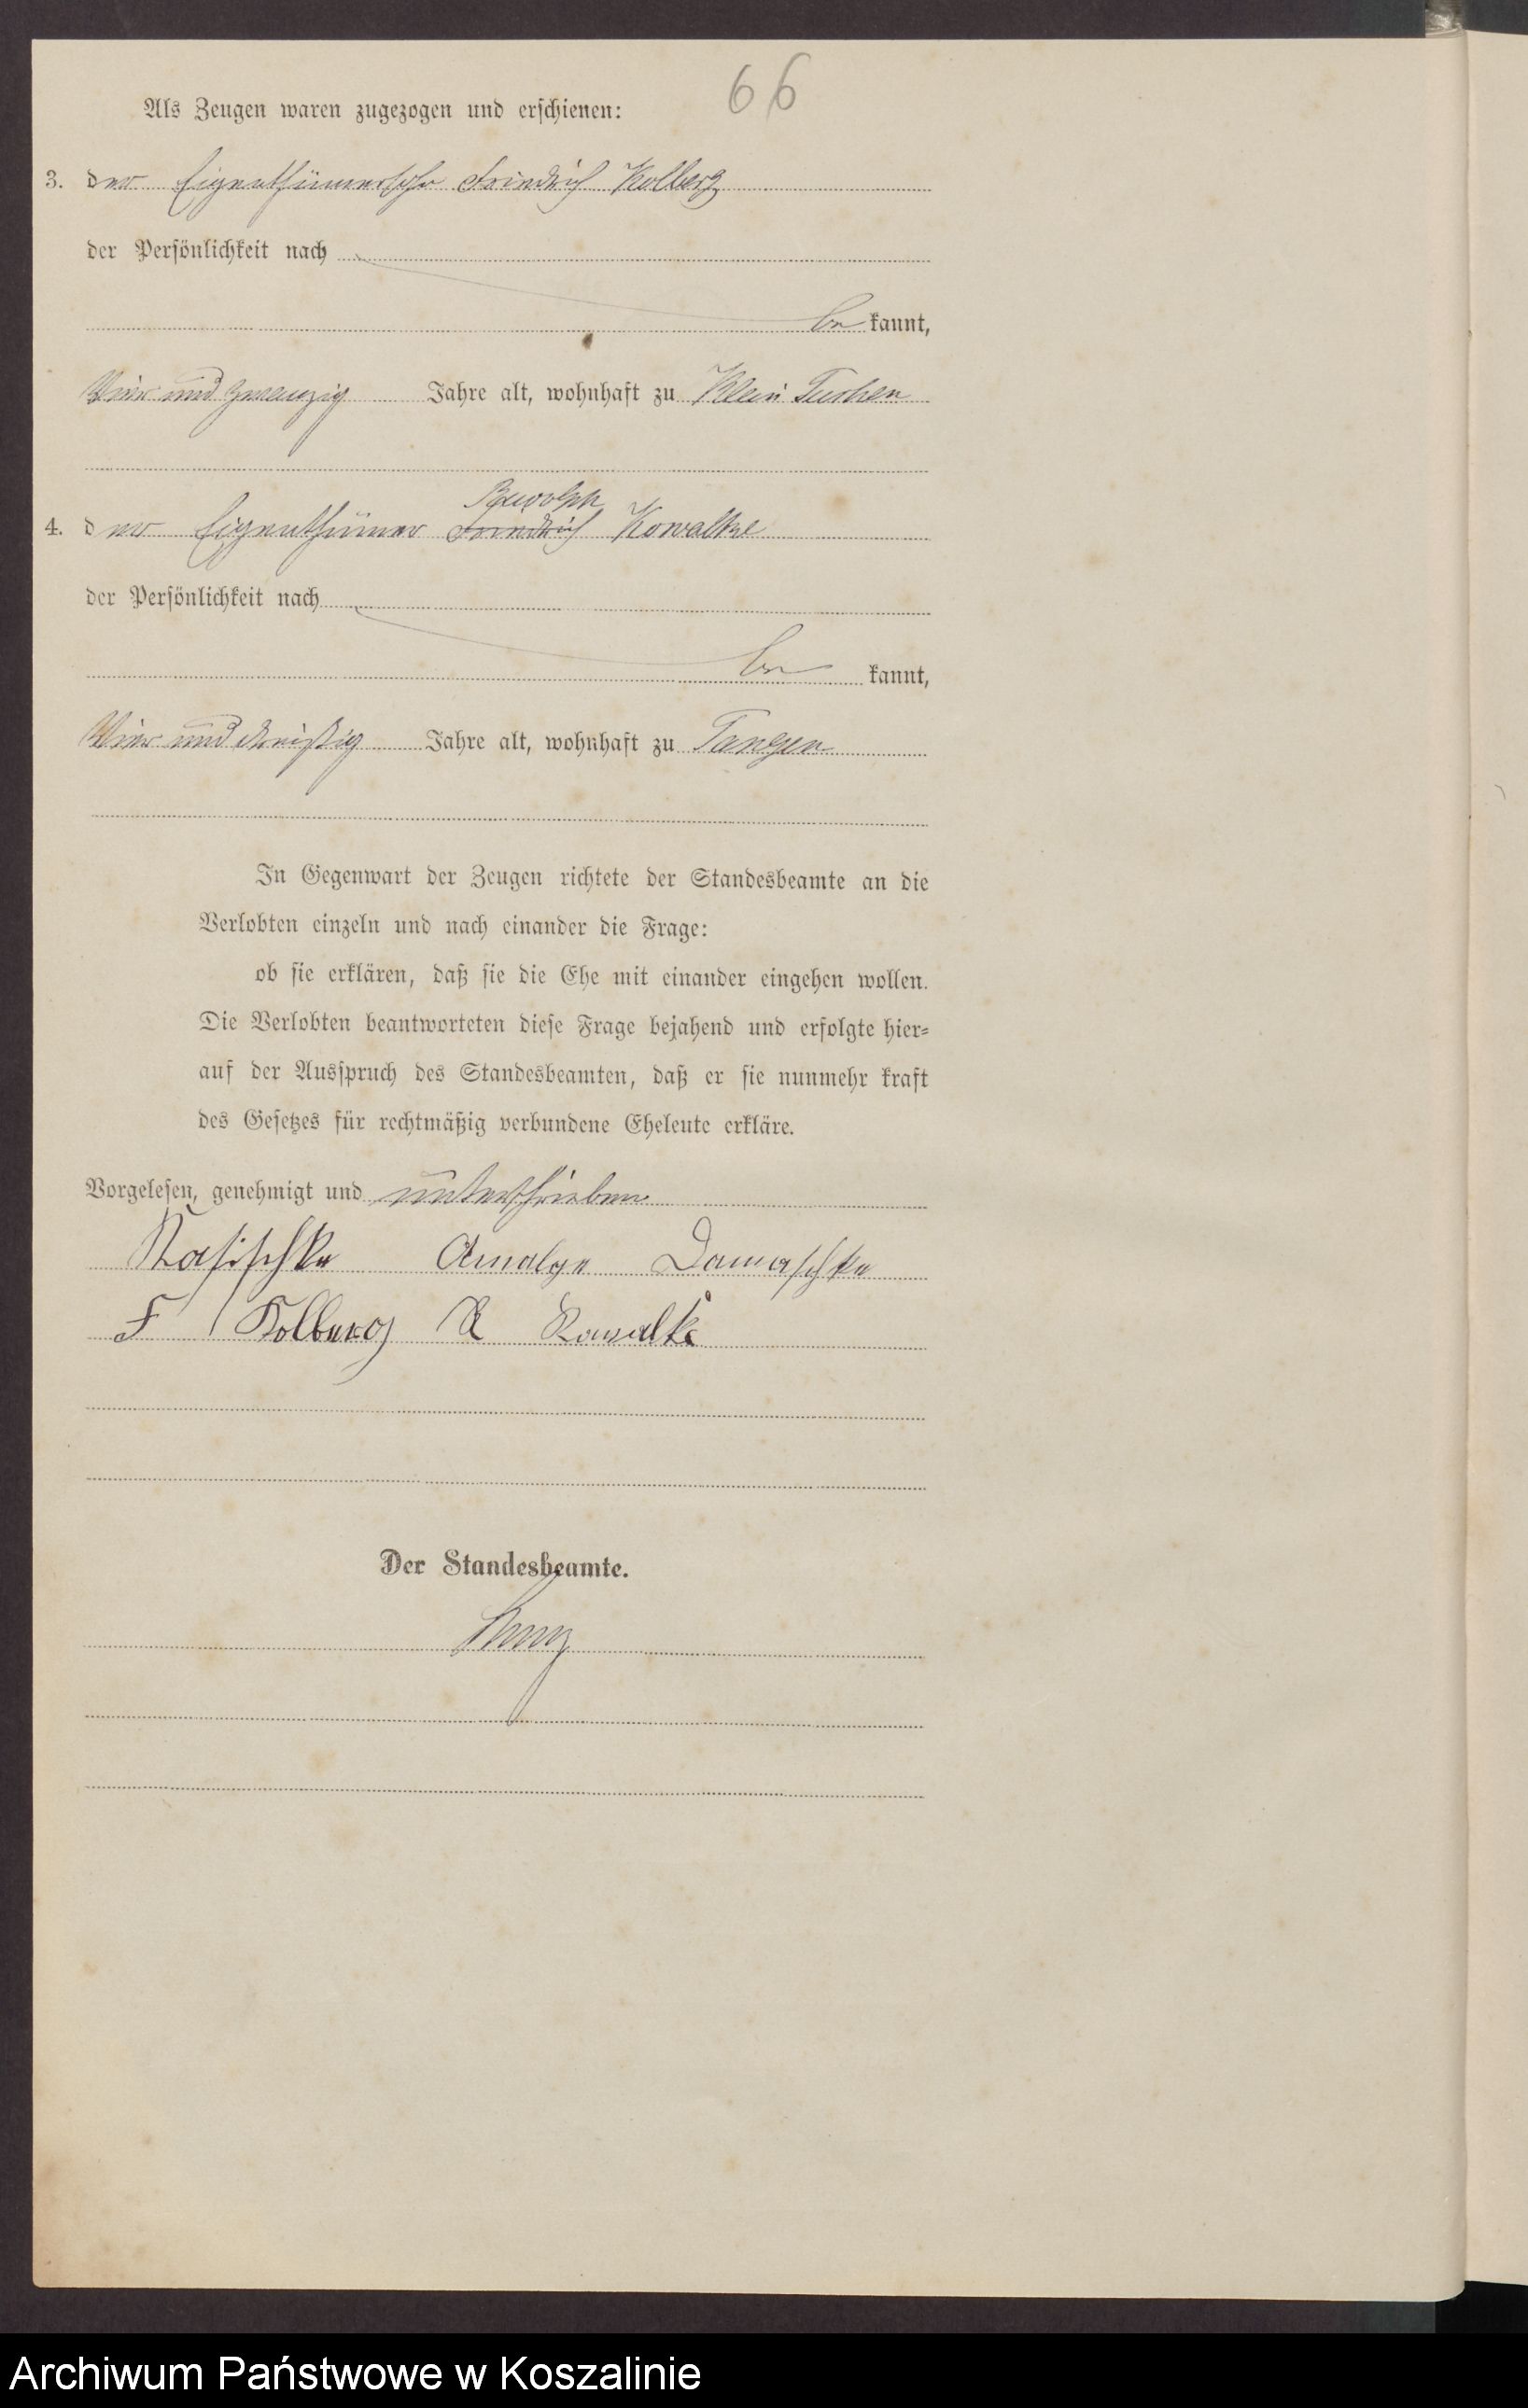 66
Als Zeugen waren zugezogen und erschienen:
3. der Eigenthümersohn Friedrich Kolberg
der Persönlichkeit nach
be kannt,
Vier und zwanzig Jahre alt, wohnhaft zu Klein Tuchen
Rudolph
4. der Eigenthümer Friedrich Kowalke
der Persönlichkeit nach
be kannt,
Vier und dreißig Jahre alt, wohnhaft zu Tangen
In Gegenwart der Zeugen richtete der Standesbeamte an die
Verlobten einzeln und nach einander die Frage:
ob sie erklären, daß sie die Ehe mit einander eingehen wollen.
Die Verlobten beantworteten diese Frage bejahend und erfolgte hier=
auf der Ausspruch des Standesbeamten, daß er sie nunmehr kraft
des Gesetzes für rechtmäßig verbundene Eheleute erkläre.
Vorgelesen, genehmigt und unterschrieben
Amalge Damaschke
F Kolberg R Kowalke
Der Standesbeamte.
Archiwum Państwowe w Koszalinie